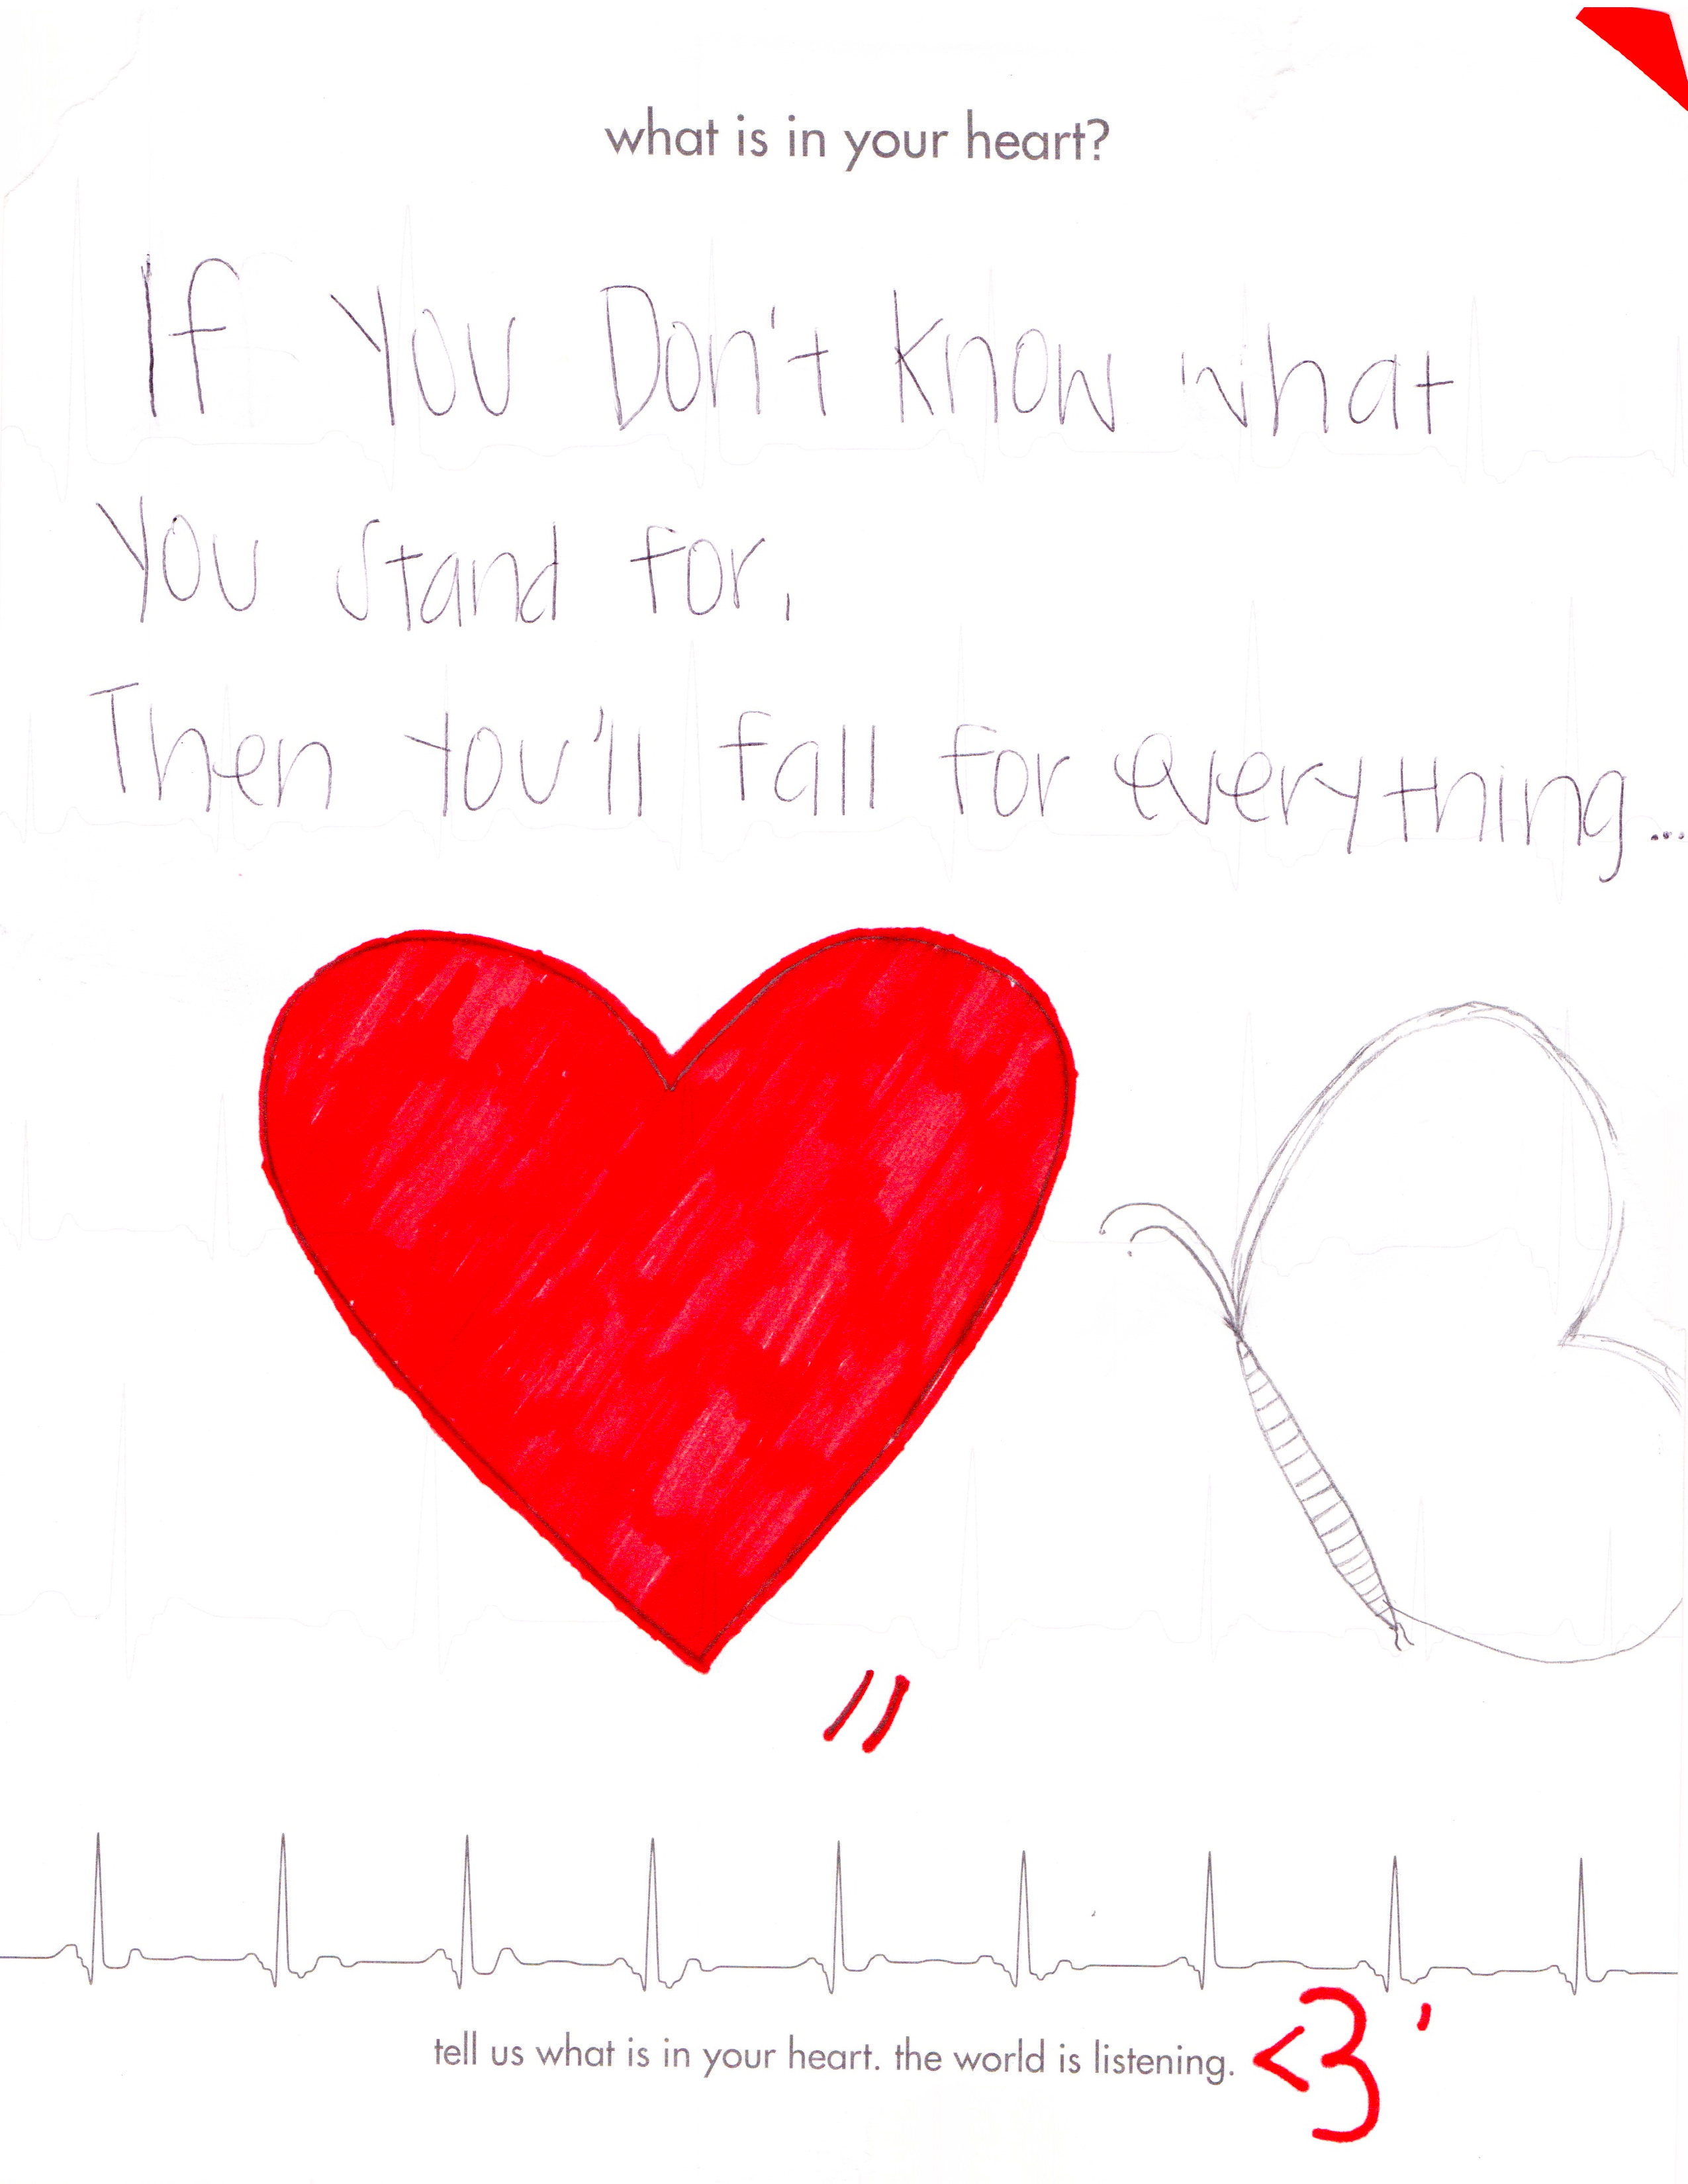 what is in your heart?
If You Don't Know what
You Stand for,
Then You'll fall for everything...
"
tell us what is in your heart. the world is listening. <3'